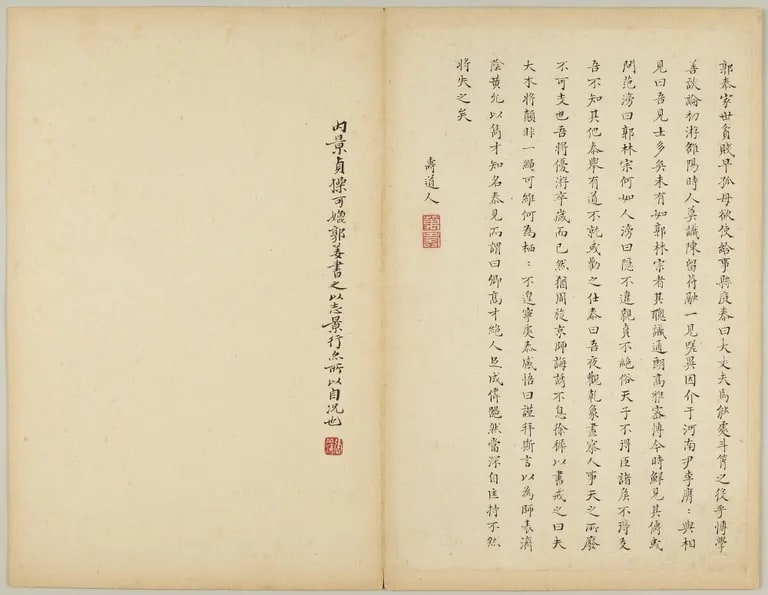 郭泰家世貧賤早孤母欲使給事縣庭泰曰大丈夫焉能處斗筲之役乎博學
善談論初游雒陽時人莫識陳留符融一見嗟異因介于河南尹李膺：與相
見曰吾見士多矣未有如郭林宗者其聰識通朗高雅密博今時鮮見其儔或
問范滂曰郭林宗何如人滂曰隱不違親貞不絕俗天子不得臣諸矦不得友
吾不知其他泰舉有道不就或勸之仕泰曰吾夜觀乾象晝察人事天之所廢
不可支也吾將優游卒歲而已然猶周旋京師誨誘不息徐穉以書戒之曰夫
大木將顛非一繩可維何為栖：不遑寧處泰感悟曰謹拜斯言以為師表濟
陰黃允以雋才知名泰見而謂曰卿高才絕人足成偉器然當深自匡持不然
將失之矣
壽道人
內景貞操可郭姜書之以志景行亦所以自况也